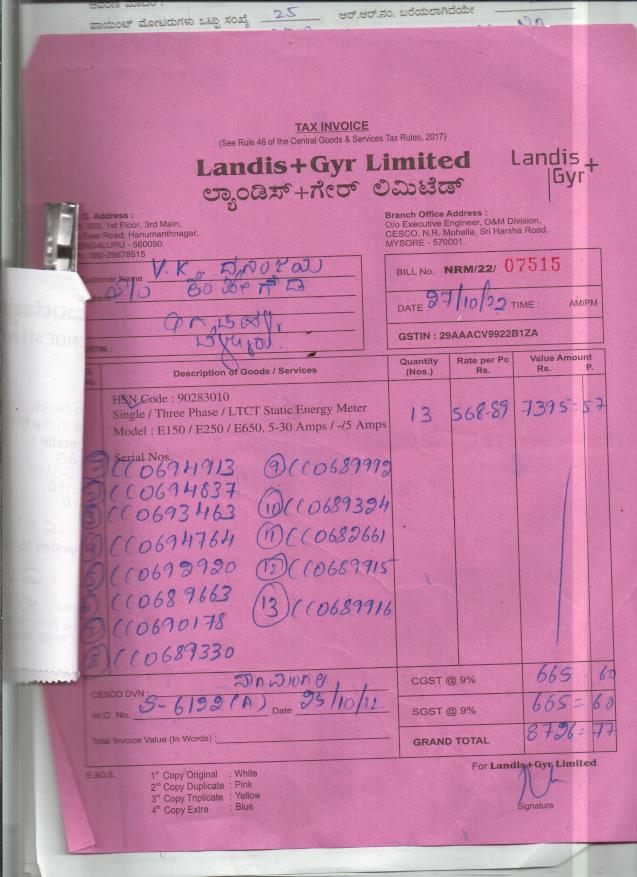 ಪಾಯಿಂಟ್ ಮೋಟರುಗಳು ಒಟ್ಟು ಸಂಖ್ಯೆ 25 ಆರ್.ಆರ್.ನಂ. ಬರೆಯಲಾಗಿದೆಯೇ
TAX INVOICE
(See Rule 46 of the Central Goods & Services Tax Rules, 2017)
Landis+Gyr Limited
Landis+
Gyr
ಲ್ಯಾಂಡಿಸ್+ಗೇರ್ ಲಿಮಿಟೆಡ್
Address :
503, 1st Floor, 3rd Main,
Feet Road, Hanumanthnagar,
- 560050.
080-26678515
Branch Office Address :
O/o Executive Engineer, O&M Division,
CESCO, N.R. Mohalla, Sri Harsha Road,
MYSORE - 570001.
Name V.K.
BILL No. NRM/22/ 07515
DATE 27/10/22 TIME : AM/PM
GSTIN : 29AAACV9922B1ZA
Description of Goods / Services Quantity (Nos.) Rate per Pc Rs. Value Amount Rs. P.
HSN Code : 90283010
Single / Three Phase / LTCT Static Energy Meter 13 568-89 7395=57
Model : E150 / E250 / E650, 5-30 Amps / -/5 Amps
Serial Nos.
① CC0694913 ⑨ CC0689992
② CC0694837
③ CC0693463 ⑩ CC0689324
④ CC0694764 ⑪ CC0682661
⑤ CC0692920 ⑫ CC0689915
⑥ CC0689663 ⑬ CC0689916
⑦ CC0690178
⑧ CC0689330
CGST @ 9% 665 60
CESCO DVN :
W.O. No. S-6122(A) Date 25/10/12
SGST @ 9% 665=60
Total Invoice Value (In Words) :
GRAND TOTAL 8726=77
E.&O.E.
For Landis+Gyr Limited
1st Copy Original : White
2nd Copy Duplicate : Pink
3rd Copy Triplicate : Yellow
4th Copy Extra : Blue
Signature